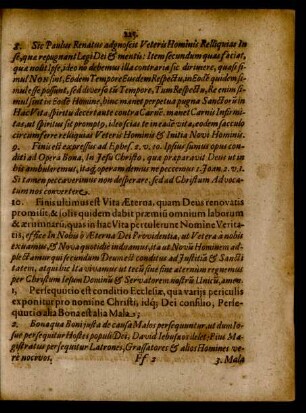 225.
8. Sic Paulus Renatus adgnoscit Veteris Hominis Relliquias In
se, qua repugnant Legi Dei & mentis: Item secundum quas faciat,
qua nolit Ipse, ideo nō debemus illa contraria sic dirimere, quasi si-
mul Non sint, Eodem Tempore Eiusdem Respectu, in Eodē quidem si-
mul esse possunt, sed diverso tū Tempore, Tum Respectu, Re enim si-
mul sint in Eodē Homine, hinc manet perpetua pugna Sanctorū in
Hac Vita spiritu decertante contra Carnē. manet Carnis Infirmi-
tas, ut spiritus sit promptu,
circumferre relliquias Veteris Hominis & Initia Novi Hominis.
9. Finis est expressus ad Ephes. 2. v. 10. Ipsius sumus opus con-
diti ad Opera Bona, In Jesu Christo, qua praparavit Deus ut in
ibis ambularemus, itaq; operam demus ne peccemus 1. Joan. 2. v. 1.
Si tamen peccaverimus non desperare, sed ad Christum Advoca-
tum nos convertere.
10. Finis ultimus est Vita Æterna, quam Deus renovatis
promisit, & solis quidem dabit præmiū omnium laborum
& ærumnarū, quas in hac Vita pertulerunt Nomine Verita-
tis, efficit In Nobis & Æterna Dei Providentia, ut Vetera nobis
exuamus, & Nova quotidie induamus, ita ut Novū Hominem ad-
plectamur qui secundum Deum est conditus ad Justitiā & Sancti
tatem, atque hic ita vivamus ut tecū sine fine aternum regnemus
per Christum Iesum Dominū & Servatorem nostrū Unicū, amen.
1. Persequutio est conditio Ecclesiæ, qua varijs periculis
exponitur pro nomine Christi, idq; Dei consilio, Perse-
quutio alia Bona est alia Mala;
2. Bona qua Boni justa de causa Malos persequuntur, ut dum Io-
sue persequitur Hostes populi Dei; David Iebusæos delet; Pius Ma-
gistratus persequitur Latrones, Grassatores & alios Homines ve-
re nocivos. Ff 2 3. Mala